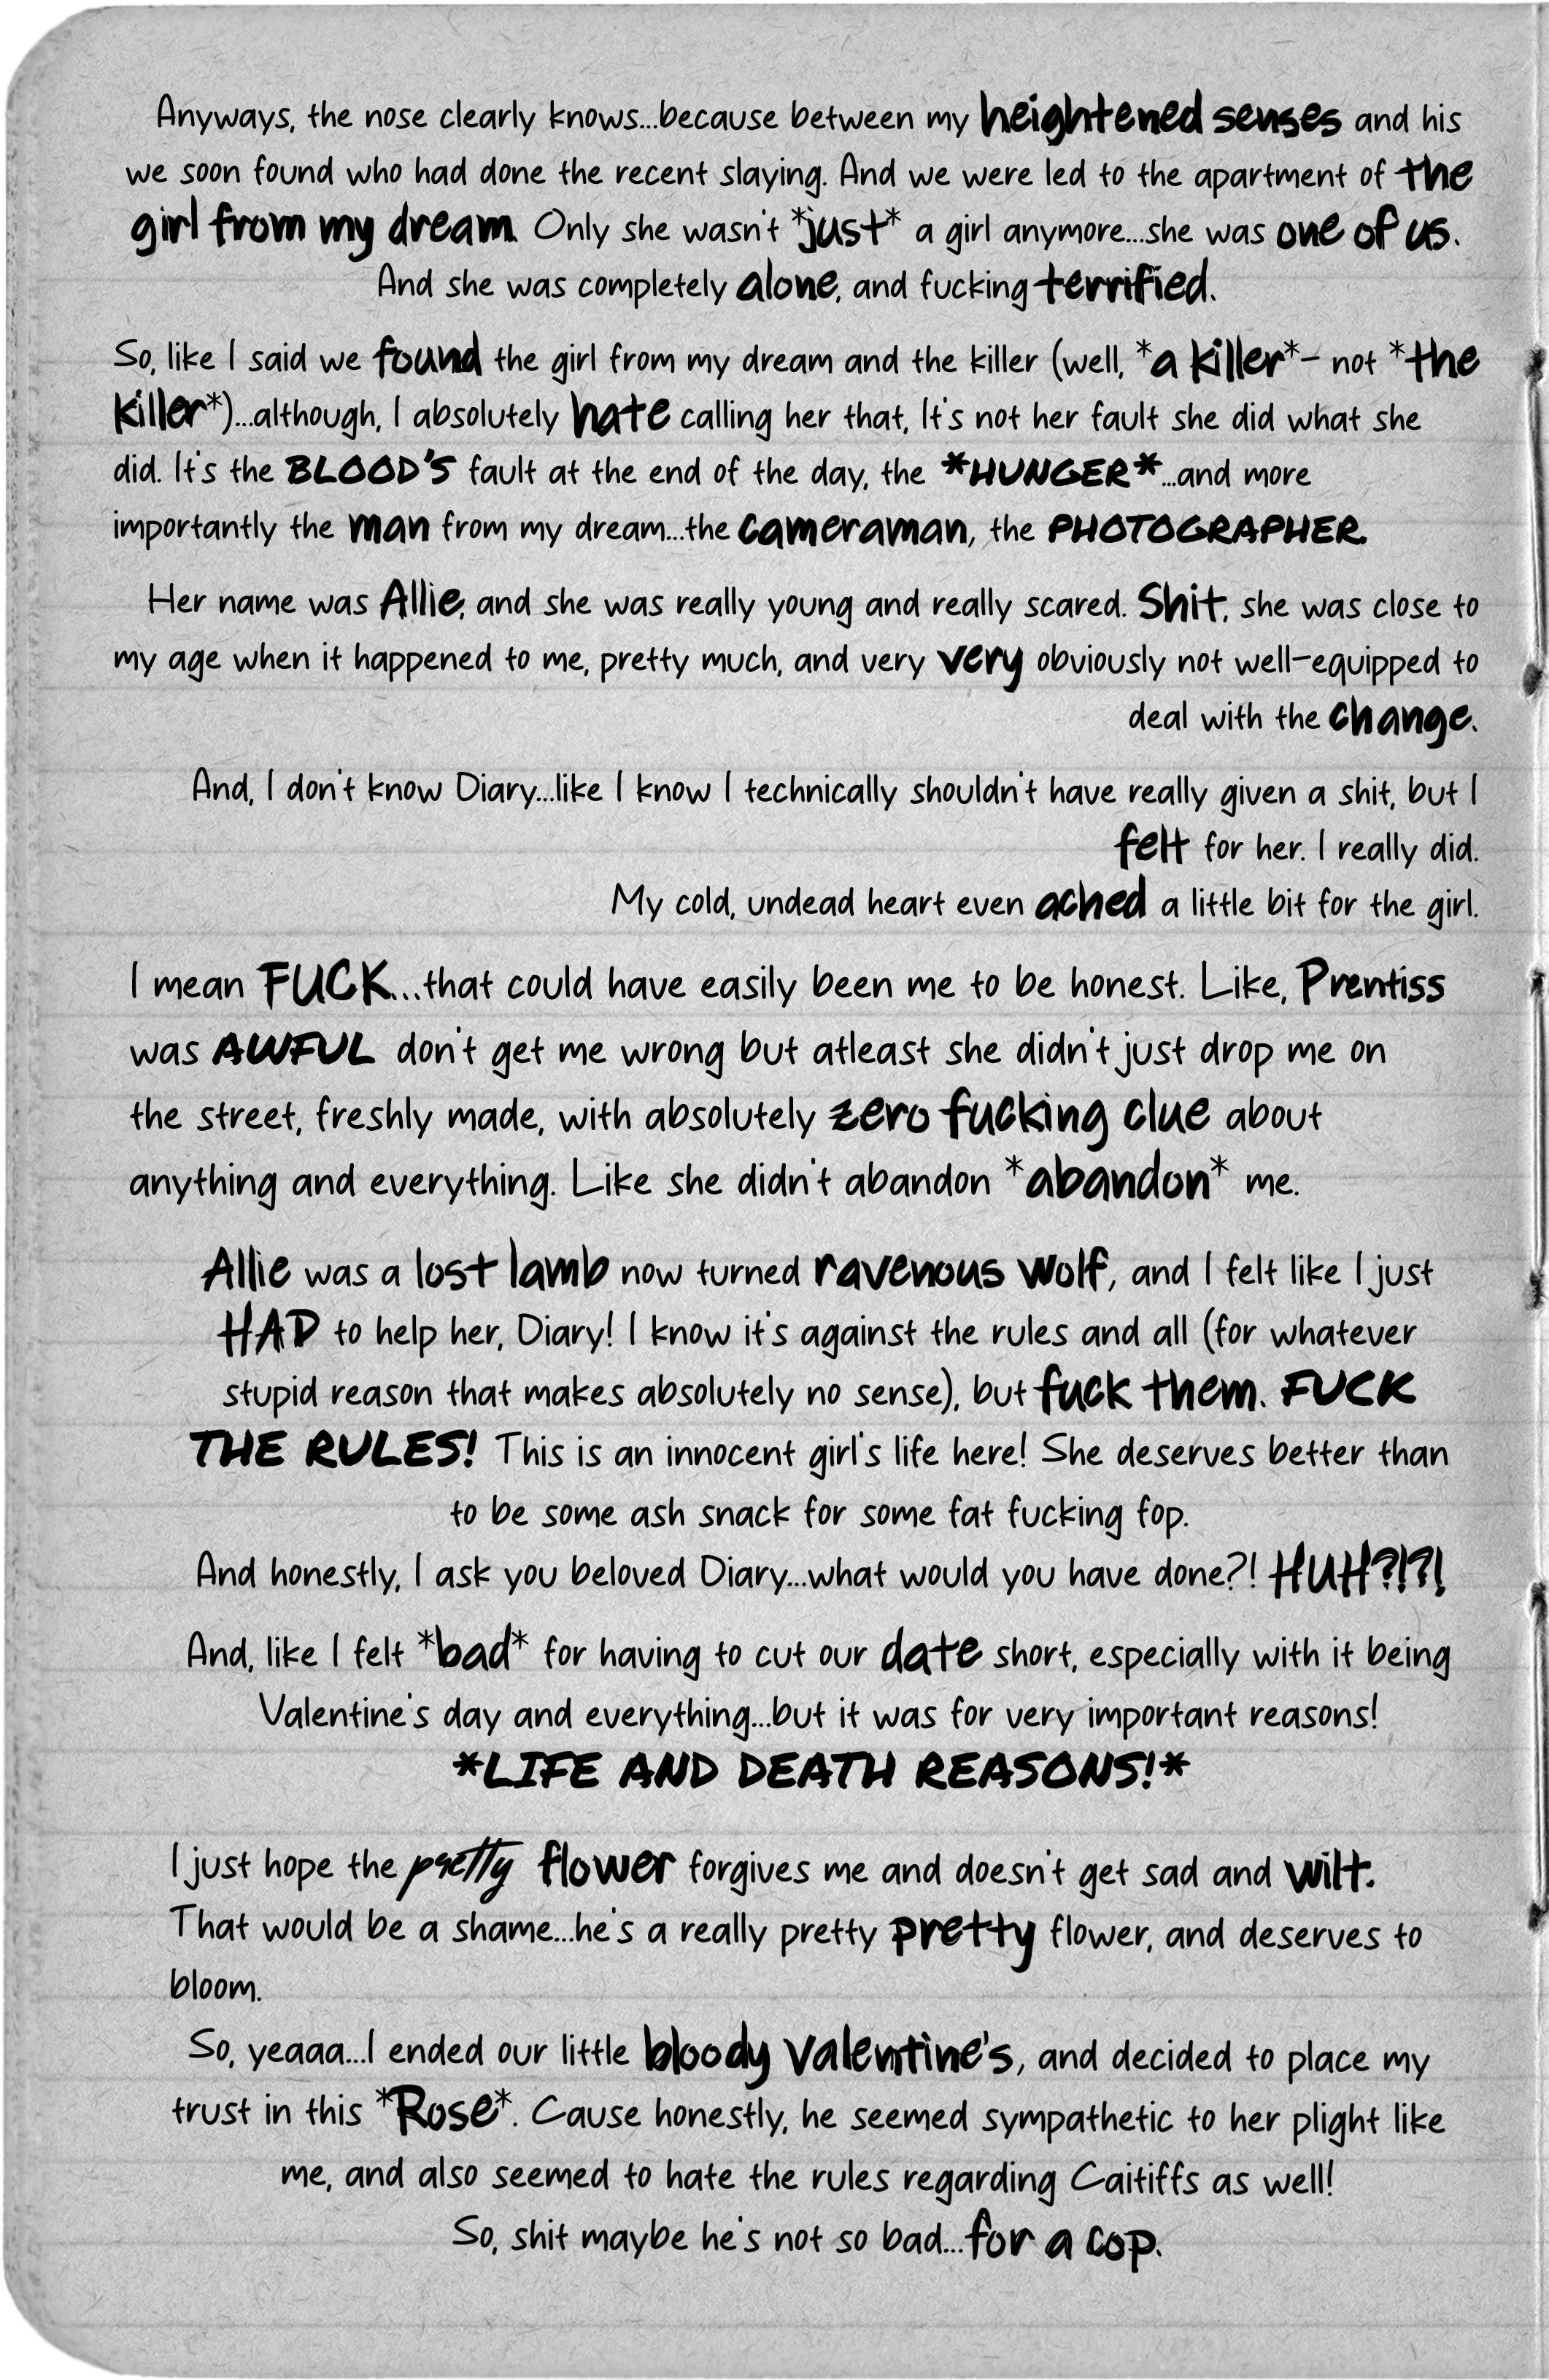 Anyways, the nose clearly knows...because between my heightened senses and his
we soon found who had done the recent slaying. And we were led to the apartment of the
girl from my dream. Only she wasn't *just* a girl anymore...she was one of us.
And she was completely alone, and fucking terrified.
So, like I said we found the girl from my dream and the killer (well, *a killer*- not *the
killer*)...although, I absolutely hate calling her that, It's not her fault she did what she
did. It's the BLOOD'S fault at the end of the day, the *HUNGER*...and more
importantly the man from my dream...the cameraman, the PHOTOGRAPHER.
Her name was Allie, and she was really young and really scared. Shit, she was close to
my age when it happened to me, pretty much, and very very obviously not well-equipped to
deal with the change.
And, I don't know Diary...like I know I technically shouldn't have really given a shit, but I
felt for her. I really did.
My cold, undead heart even ached a little bit for the girl.
I mean FUCK...that could have easily been me to be honest. Like, Prentiss
was AWFUL don't get me wrong but atleast she didn't just drop me on
the street, freshly made, with absolutely zero fucking clue about
anything and everything. Like she didn't abandon *abandon* me.
Allie was a lost lamb now turned ravenous wolf, and I felt like I just
HAD to help her, Diary! I know it's against the rules and all (for whatever
stupid reason that makes absolutely no sense), but fuck them. FUCK
THE RULES! This is an innocent girl's life here! She deserves better than
to be some ash snack for some fat fucking fop.
And honestly, I ask you beloved Diary...what would you have done?! HUH?!?!
And, like I felt *bad* for having to cut our date short, especially with it being
Valentine's day and everything...but it was for very important reasons!
*LIFE AND DEATH REASONS!*
I just hope the pretty flower forgives me and doesn't get sad and wilt.
That would be a shame...he's a really pretty pretty flower, and deserves to
bloom.
So, yeaaa...I ended our little bloody valentine's, and decided to place my
trust in this *Rose*. Cause honestly, he seemed sympathetic to her plight like
me, and also seemed to hate the rules regarding Caitiffs as well!
So, shit maybe he's not so bad...for a cop.